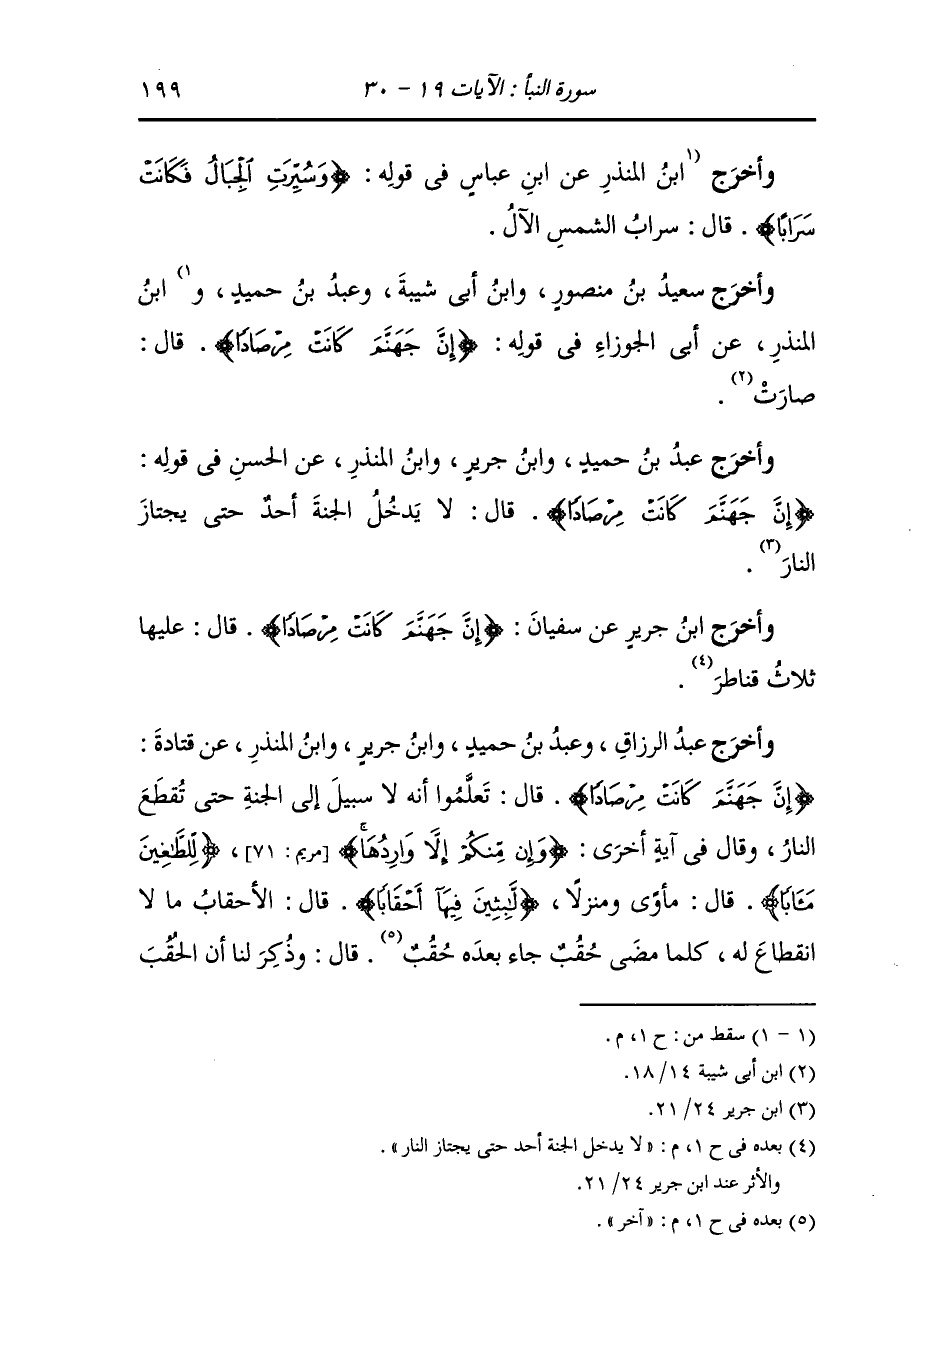 سورة النبأ : الآيات ١٩ - ٣٠ ١٩٩
وأخرَج (١ ابنُ المنذرِ عن ابنِ عباسٍ فى قولِه : ﴿وَسُيِّرَتِ ٱلْجِبَالُ فَكَانَتْ
سَرَابًا﴾ . قال : سرابُ الشمسِ الآلُ .
وأخرَج سعيدُ بنُ منصورٍ ، وابنُ أبى شيبةَ ، وعبدُ بنُ حميدٍ ، و ١) ابنُ
المنذرِ ، عن أبى الجوزاءِ فى قولِه : ﴿إِنَّ جَهَنَّمَ كَانَتْ مِرْصَادًا﴾ . قال :
صارَتْ (٢) .
وأخرَج عبدُ بنُ حميدٍ ، وابنُ جريرٍ ، وابنُ المنذرِ ، عن الحسنِ فى قولِه :
﴿إِنَّ جَهَنَّمَ كَانَتْ مِرْصَادًا﴾ . قال : لا يَدخُلُ الجنةَ أحدٌ حتى يجتازَ
النارَ (٣) .
وأخرَج ابنُ جريرٍ عن سفيانَ : ﴿إِنَّ جَهَنَّمَ كَانَتْ مِرْصَادًا﴾ . قال : عليها
ثلاثُ قناطرَ (٤) .
وأخرَج عبدُ الرزاقِ ، وعبدُ بنُ حميدٍ ، وابنُ جريرٍ ، وابنُ المنذرِ ، عن قتادةَ :
﴿إِنَّ جَهَنَّمَ كَانَتْ مِرْصَادًا﴾ . قال : تَعلَّمُوا أنه لا سبيلَ إلى الجنةِ حتى تُقطَعَ
النارُ ، وقال فى آيةٍ أخرَى : ﴿وَإِن مِّنكُمْ إِلَّا وَارِدُهَاۚ﴾ [مريم : ٧١] ، ﴿لِّلطَّـٰغِينَ
مَـَٔابًا﴾ . قال : مأوًى ومنزلًا ، ﴿لَّـٰبِثِينَ فِيهَآ أَحْقَابًا﴾ . قال : الأحقابُ ما لا
انقطاعَ له ، كلما مضَى حُقُبٌ جاء بعدَه حُقُبٌ (٥) . قال : وذُكِرَ لنا أن الحُقُبَ
(١ - ١) سقط من : ح ١، م .
(٢) ابن أبى شيبة ١٤/ ١٨.
(٣) ابن جرير ٢٤/ ٢١.
(٤) بعده فى ح ١، م : «لا يدخل الجنة أحد حتى يجتاز النار» .
والأثر عند ابن جرير ٢٤/ ٢١.
(٥) بعده فى ح ١، م : «آخر» .